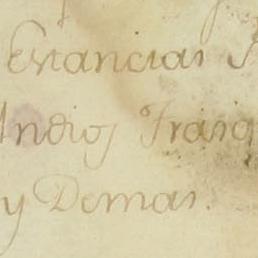 Estancias
Indios Frasq
y Demas.